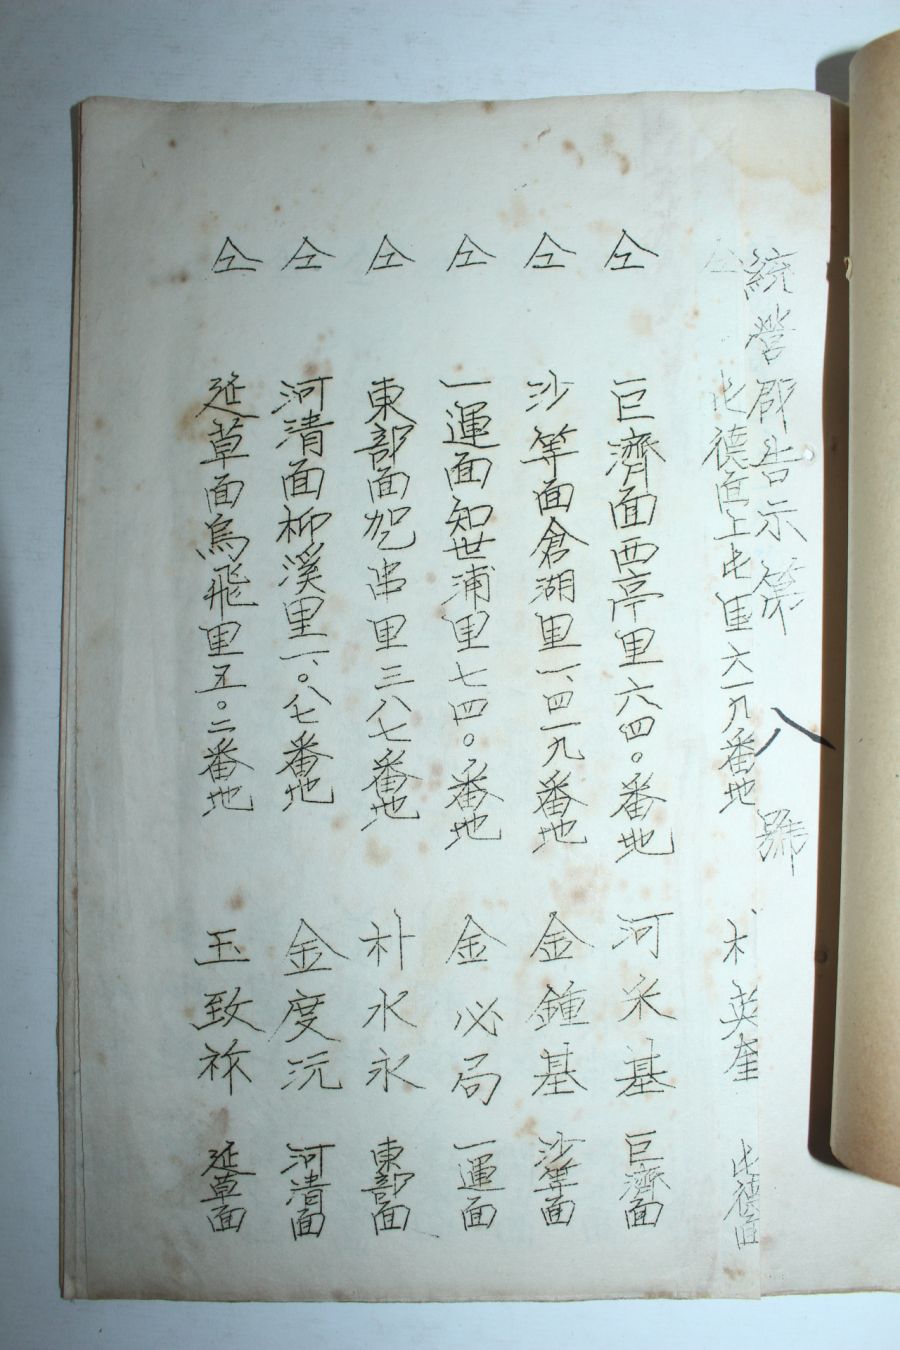 統營郡告示第八號
仝 屯德面上屯里六一九番地 朴英奎 屯德面
仝 巨濟面西亭里六四〇番地 河采基 巨濟面
仝 沙等面倉湖里一、四一九番地 金鍾基 沙等面
仝 一運面知世浦里七四〇番地 金必局 一運面
仝 東部面加乙串里三八七番地 朴水永 東部面
仝 河清面柳溪里一、〇八七番地 金度沅 河清面
仝 延草面烏飛里五〇二番地 玉致祚 延草面